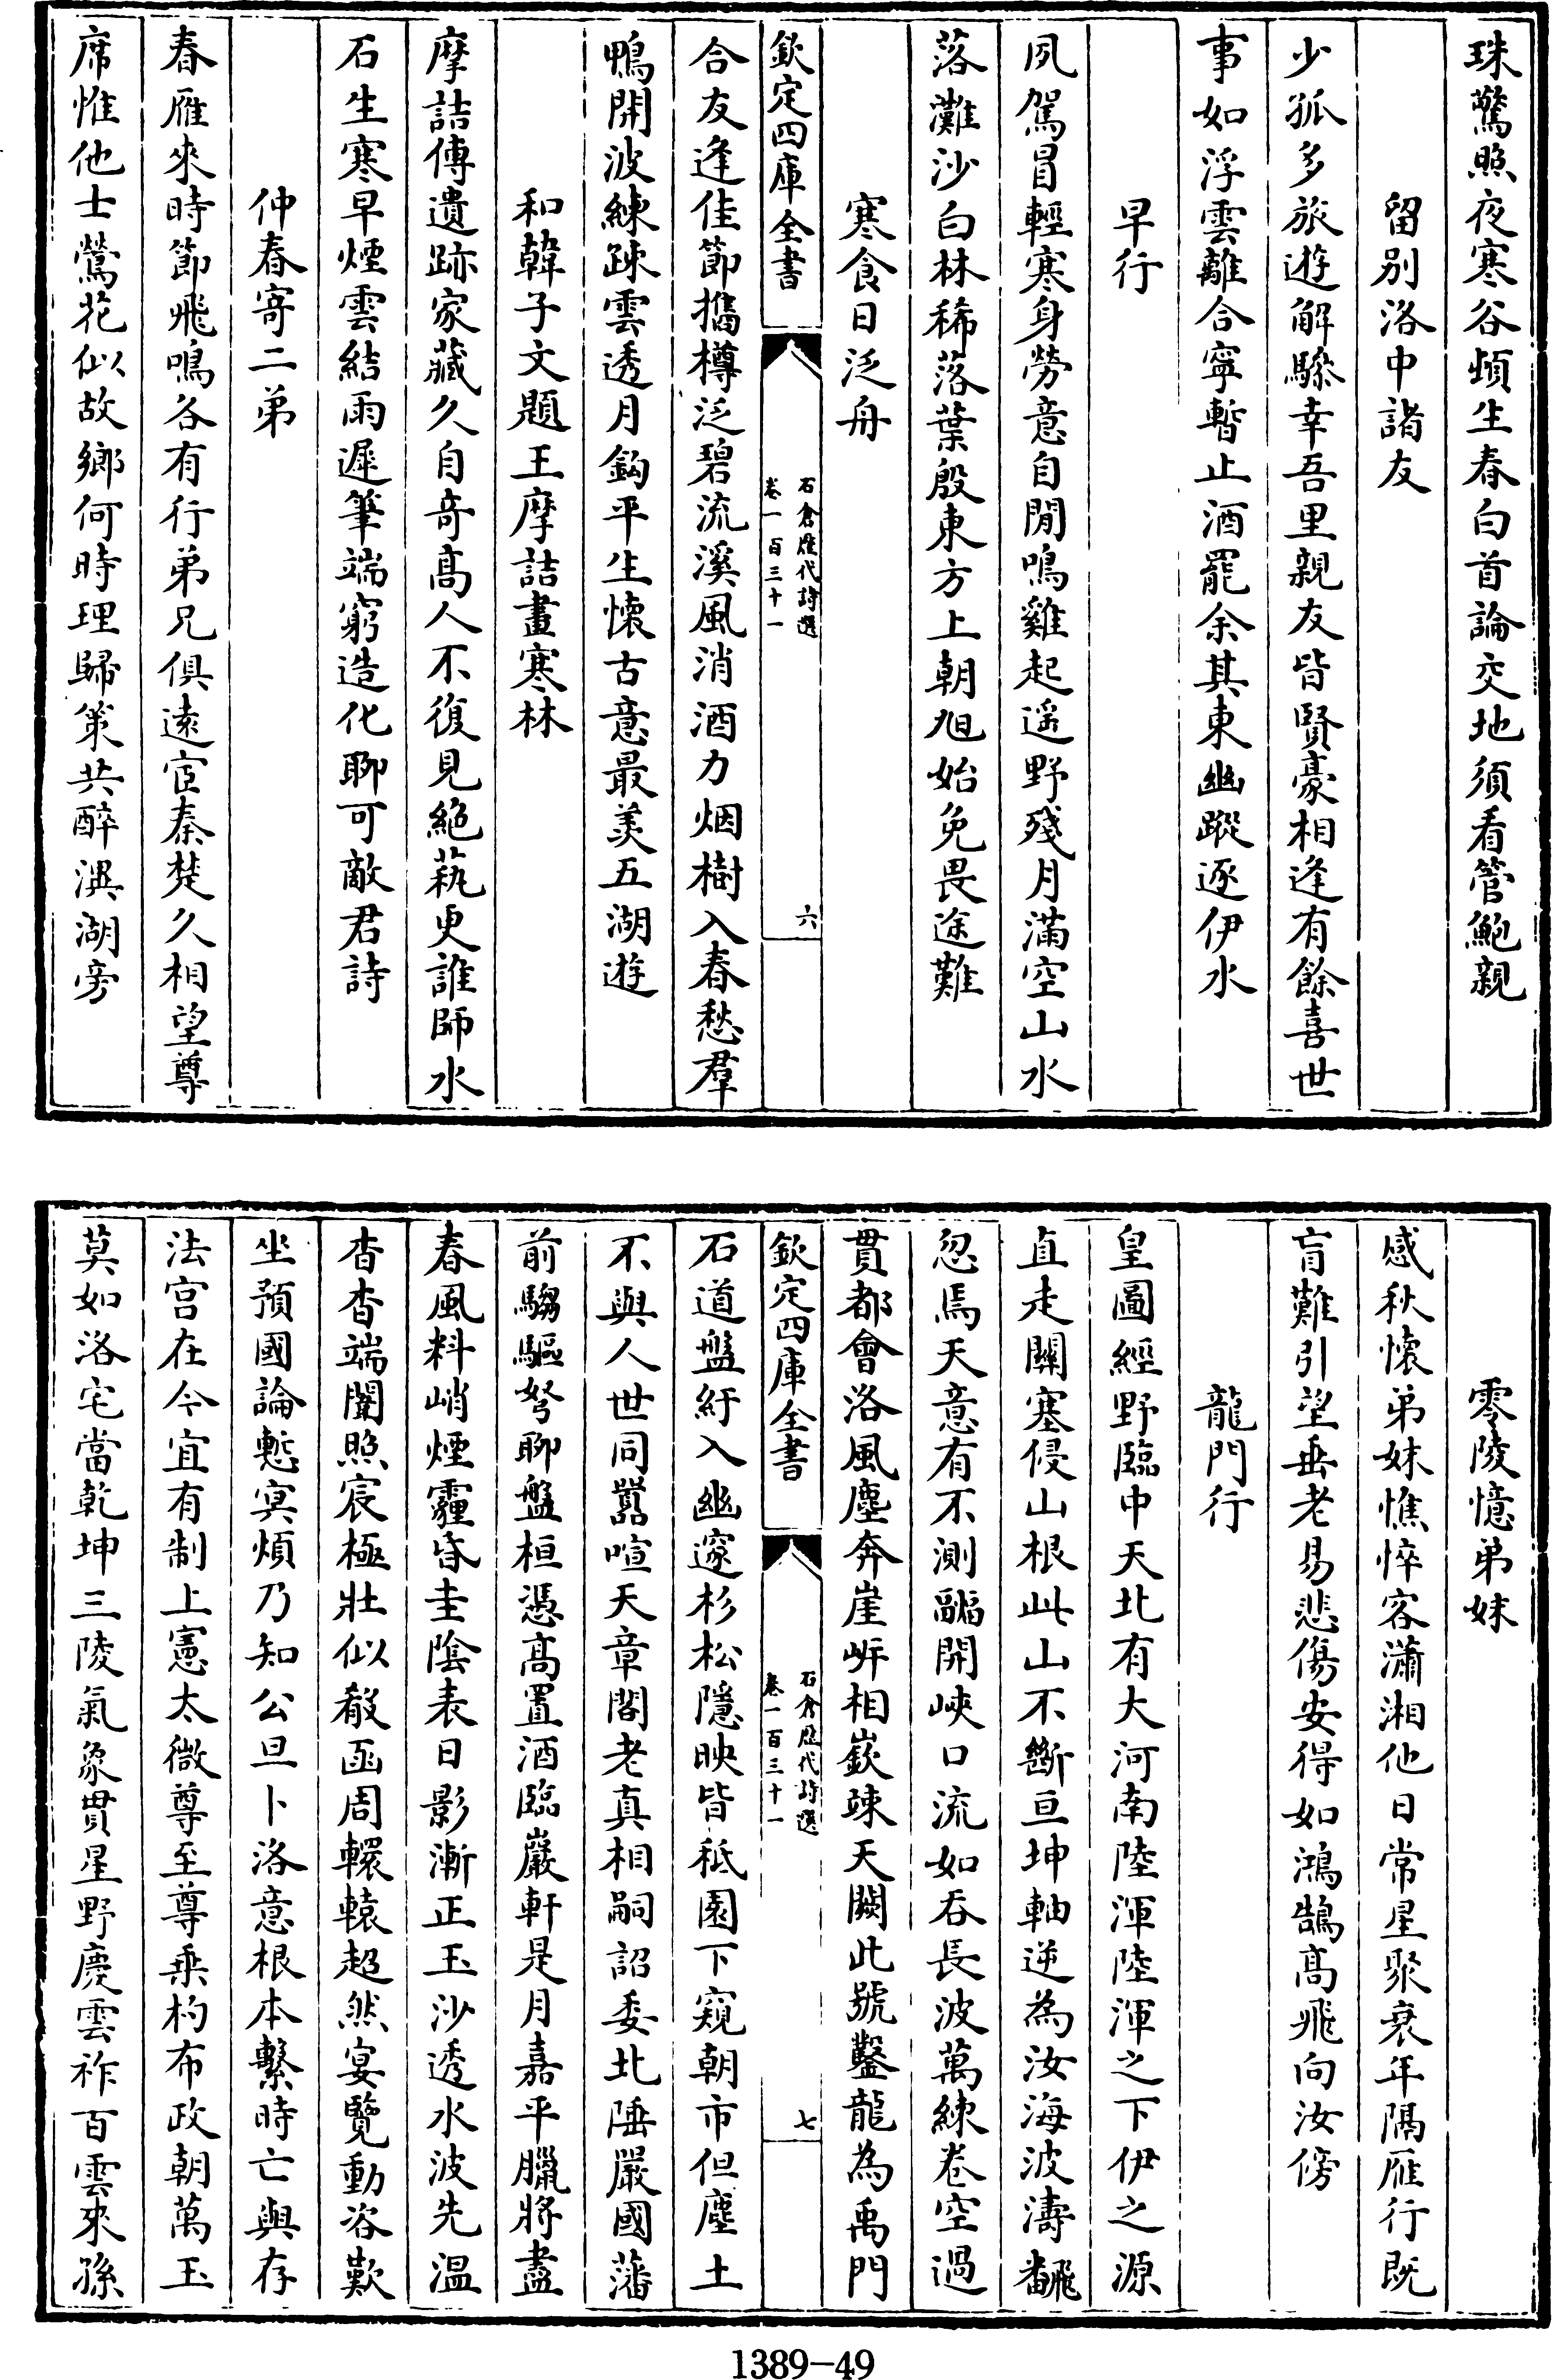 珠驚照夜寒谷頓生春白首論交地須看管鮑親
留別洛中諸友
少孤多旅遊解驂幸吾里親友皆賢豪相逢有餘喜世
事如浮雲離合寧暫止酒罷余其東幽蹤逐伊水
早行
夙駕冒輕寒身勞意自閒鳴雞起遥野殘月滿空山水
落灘沙白林稀落葉殷東方上朝旭始免畏途難
寒食日泛舟
欽定四庫全書
石倉歷代詩選
卷一百三十一
六
合友逢佳節攜樽泛碧流溪風消酒力烟樹入春愁羣
鴨開波練疎雲透月鈎平生懐古意最羨五湖遊
和韓子文題王摩詰畫寒林
摩詰傳遺跡家藏久自竒高人不復見絕藝更誰師水
石生寒早煙雲結雨遲筆端窮造化聊可敵君詩
仲春寄二弟
春雁來時節飛鳴各有行弟兄俱遠宦秦楚久相望尊
席惟他士鶯花似故鄉何時理歸策共醉潩湖旁
零陵憶弟妹
感秋懷弟妹憔悴客瀟湘他日常星聚衰年隔雁行既
盲難引望垂老易悲傷安得如鴻鵠高飛向汝傍
龍門行
皇圖經野臨中天北有大河南陸渾陸渾之下伊之源
直走關塞侵山根此山不斷亘坤軸逆為汝海波濤飜
忽焉天意有不測疈開峽口流如吞長波萬練卷空過
貫都會洛風塵奔崖㟁相嶔竦天闕此號鑿龍為禹門
欽定四庫全書
石倉歷代詩選
卷一百三十一
七
石道盤紆入幽邃杉松隱映皆秪園下窺朝市但塵土
不與人世同囂喧天章閣老真相嗣詔委北陲嚴國藩
前騶驅弩聊盤桓憑高置酒臨巖軒是月嘉平臘將盡
春風料峭煙霾昏圭陰表日影漸正玉沙透水波先温
杳杳端闈照宸極壯似殽函周轘轅超然宴覽動咨歎
坐預國論慙寘煩乃知公旦卜洛意根本繫時亡與存
法宫在今宜有制上憲太微尊至尊乘杓布政朝萬玉
莫如洛宅當乾坤三陵氣象貫星野慶雲祚百雲來孫
1389-49